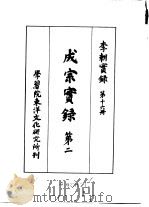 李朝實錄 第十六冊
成宗實錄 第二
學習院東洋文化研究所刊